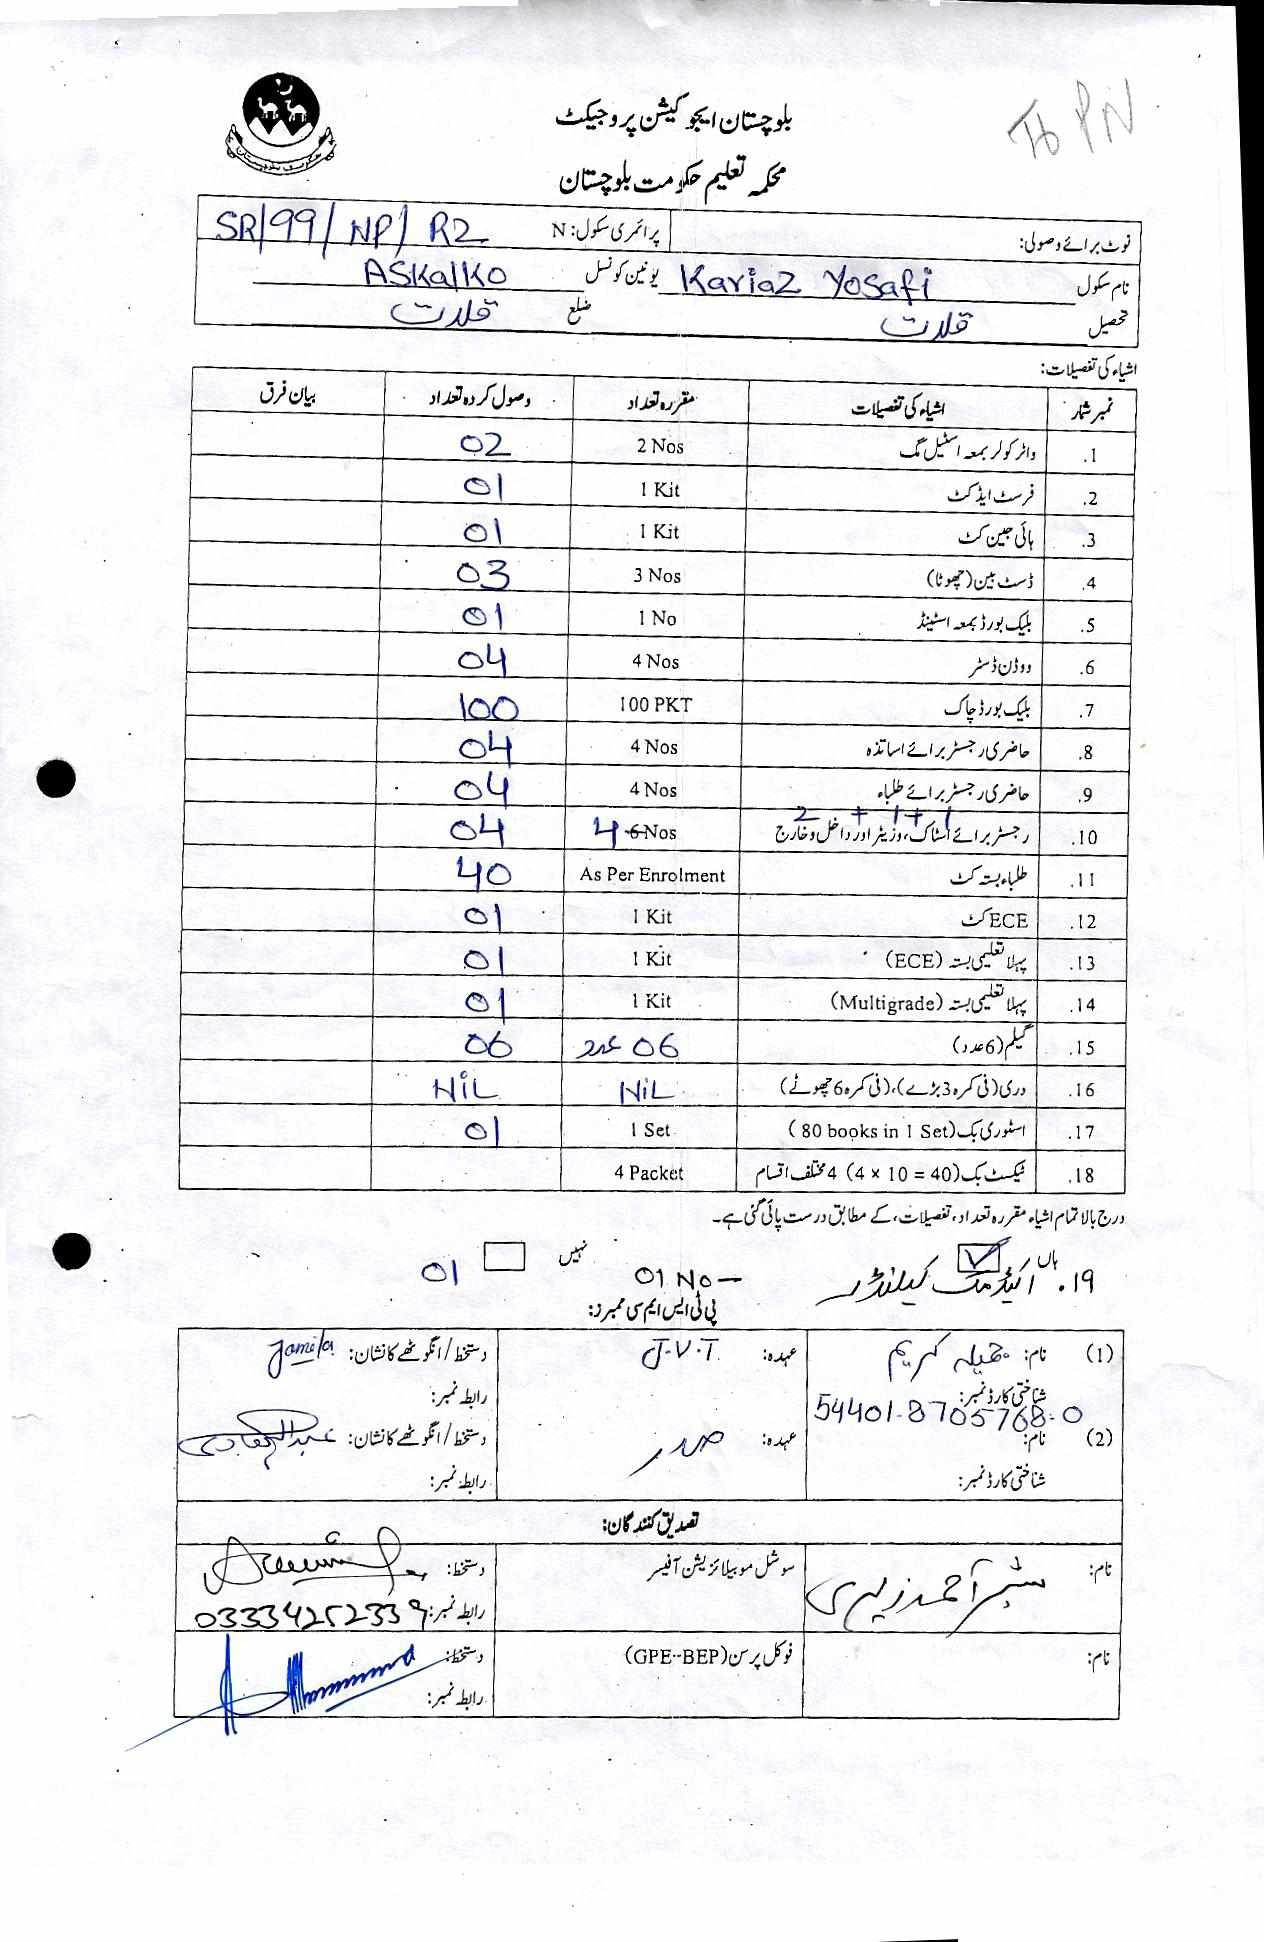 To PN
بلوچستان ایجوکیشن پروجیکٹ
محکمہ تعلیم حکومت بلوچستان
نوٹ برائے وصولی: پرائمری سکول: N SR/99/NP/R2
نام سکول Kariaz Yosafi یونین کونسل ASKalKo
تحصیل قلات ضلع قلات
اشیاء کی تفصیلات:
نمبر شمار اشیاء کی تفصیلات مقررہ تعداد وصول کردہ تعداد بیان فرق
1. واٹر کولر بمعہ اسٹیل مگ 2 Nos 02
2. فرسٹ ایڈ کٹ 1 Kit 01
3. ہائی جین کٹ 1 Kit 01
4. ڈسٹ بین (چھوٹا) 3 Nos 03
5. بلیک بورڈ بمعہ اسٹینڈ 1 No 01
6. ووڈن ڈسٹر 4 Nos 04
7. بلیک بورڈ چاک 100 PKT 100
8. حاضری رجسٹر برائے اساتذہ 4 Nos 04
9. حاضری رجسٹر برائے طلباء 4 Nos 04
2 + 1 + 1
10. رجسٹر برائے اسٹاک، وزیٹر اور داخل و خارج 4 6 Nos 04
11. طلباء بستہ کٹ As Per Enrolment 40
12. ECE کٹ 1 Kit 01
13. پہلا تعلیمی بستہ (ECE) 1 Kit 01
14. پہلا تعلیمی بستہ (Multigrade) 1 Kit 01
15. گلیم (6 عدد) 06 عدد 06
16. دری (فی کمرہ 3 بڑے)، (فی کمرہ 6 چھوٹے) NiL NiL
17. اسٹوری بک (80 books in 1 Set) 1 Set 01
18. ٹیکسٹ بک (4 × 10 = 40) 4 مختلف اقسام 4 Packet
درج بالا تمام اشیاء مقررہ تعداد، تفصیلات، کے مطابق درست پائی گئی ہے۔
ہاں ✓ نہیں
19. اکیڈمک کیلنڈر 01 No — 01
پی ٹی ایس ایم سی ممبرز:
(1) نام: جمیلہ کریم عہدہ: J.V.T دستخط / انگوٹھے کا نشان: Jamila
شناختی کارڈ نمبر: 54401-8705768-0 رابطہ نمبر:
(2) نام: عہدہ: صدر دستخط / انگوٹھے کا نشان:
شناختی کارڈ نمبر: رابطہ نمبر:
تصدیق کنندگان:
نام: بشیر احمد زہری سوشل موبیلائزیشن آفیسر دستخط:
رابطہ نمبر: 03334252339
نام: فوکل پرسن (GPE-BEP) دستخط:
رابطہ نمبر: